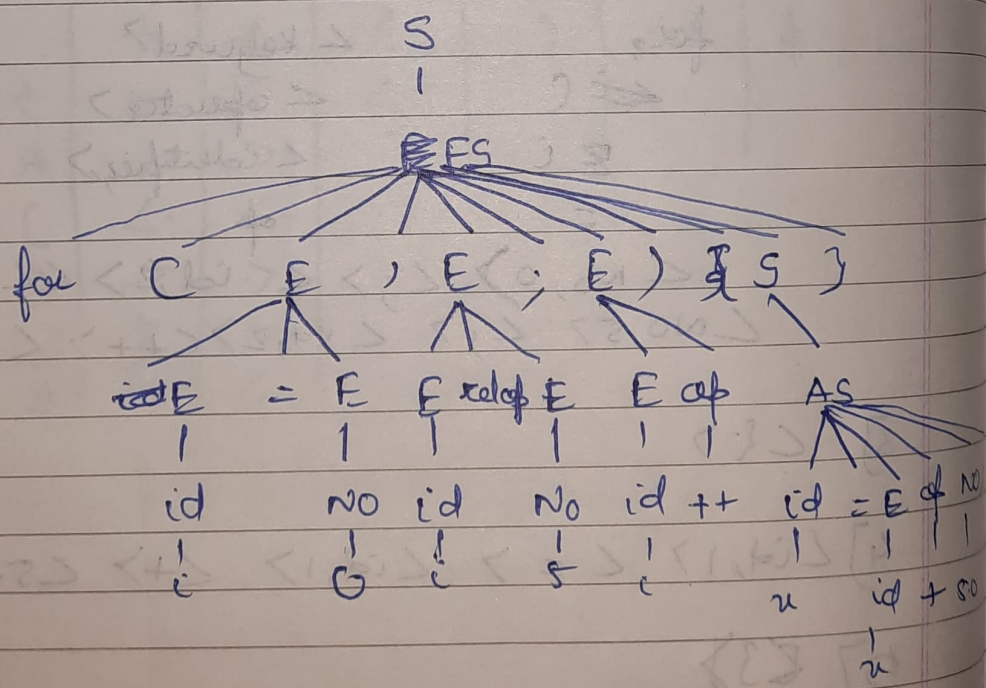 S
FS
for ( E , E ; E ) { S }
E = E E relop E E op AS
id NO id NO id ++ id = E op NO
i 0 i 5 i x id + 50
x